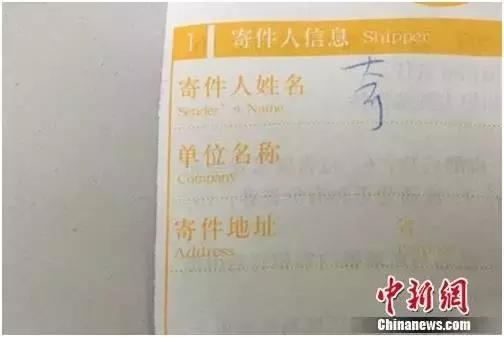 1 寄件人信息 Shipper
寄件人姓名
Sender's Name
单位名称
Company
寄件地址 省
Address
中新网
Chinanews.com